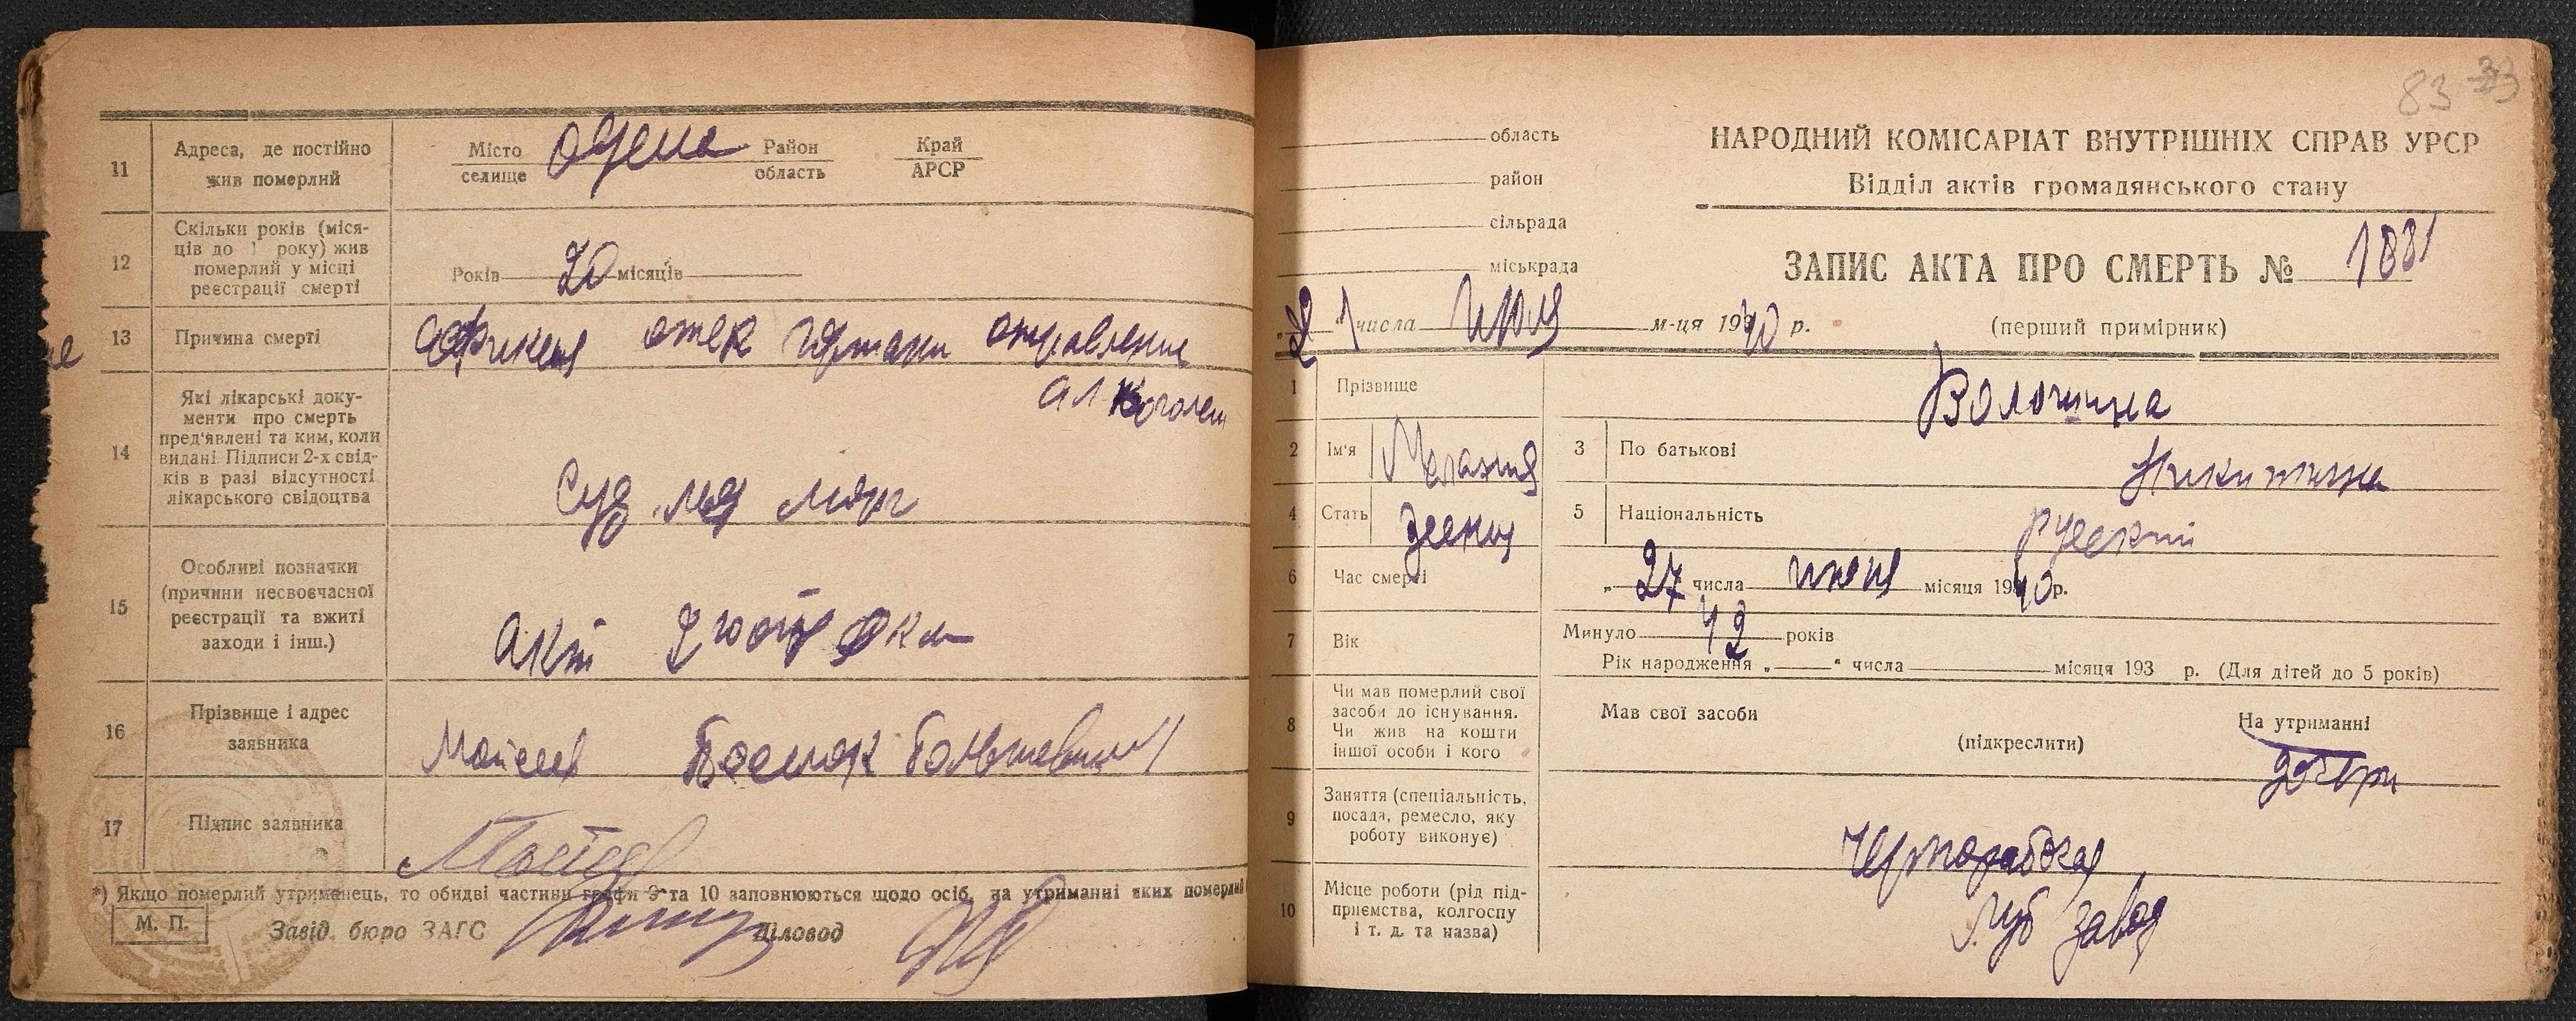 11
Адреса, де постійно
жив померлий
Місто
селище
Одесса
Район
область
Край
АРСР
12
Скільки років (міся-
ців до 1 року) жив
померлий у місці
реєстрації смерті
Років 20 місяців
13
Причина смерті
отек гортани отравление
алкоголем
14
Які лікарські доку-
менти про смерть
пред'явлені та ким, коли
видані. Підписи 2-х свід-
ків в разі відсутності
лікарського свідоцтва
Суд. мед морг
15
Особливі позначки
(причини несвоєчасної
реєстрації та вжиті
заходи і інш.)
Акт
16
Прізвище і адрес
заявника
17
Підпис заявника
*) Якщо померлий утриманець, то обидві частини графи 9 та 10 заповнюються щодо осіб, на утриманні яких померлий
М. П.
Завід. бюро ЗАГС
Діловод
83
область
район
сільрада
міськрада
НАРОДНИЙ КОМІСАРІАТ ВНУТРІШНІХ СПРАВ УРСР
Відділ актів громадянського стану
ЗАПИС АКТА ПРО СМЕРТЬ № 1881
(перший примірник)
"21" числа июля м-ця 1940 р.
1
Прізвище
Волошина
2
Ім'я
Мелания
3
По батькові
Никитична
4
Стать
женск
5
Національність
русский
6
Час смерті
"27 числа июня місяця 1940 р.
7
Вік
Минуло 42 років
Рік народження " " числа місяця 193 р. (Для дітей до 5 років)
8
Чи мав померлий свої
засоби до існування.
Чи жив на кошти
іншої особи і кого
Мав свої засоби
(підкреслити)
На утриманні
дочери
9
Заняття (спеціальність,
посада, ремесло, яку
роботу виконує)
Чернорабочая
10
Місце роботи (рід під-
приємства, колгоспу
і т. д. та назва)
завод